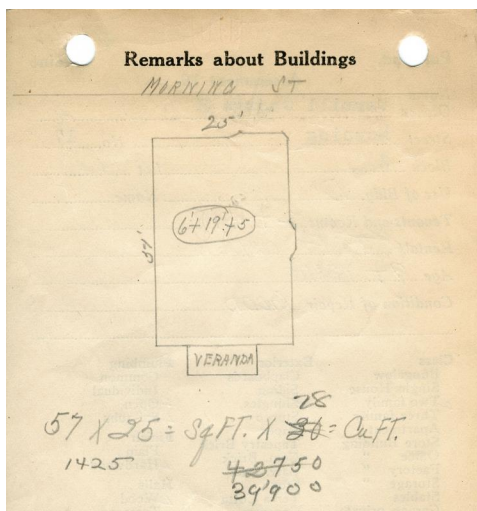 Remarks about Buildings
MORNING ST
25'
6'+19'+5
57'
VERANDA
28
57 X 25 = Sq FT. X 30 = Cu FT.
1425
42750
39900